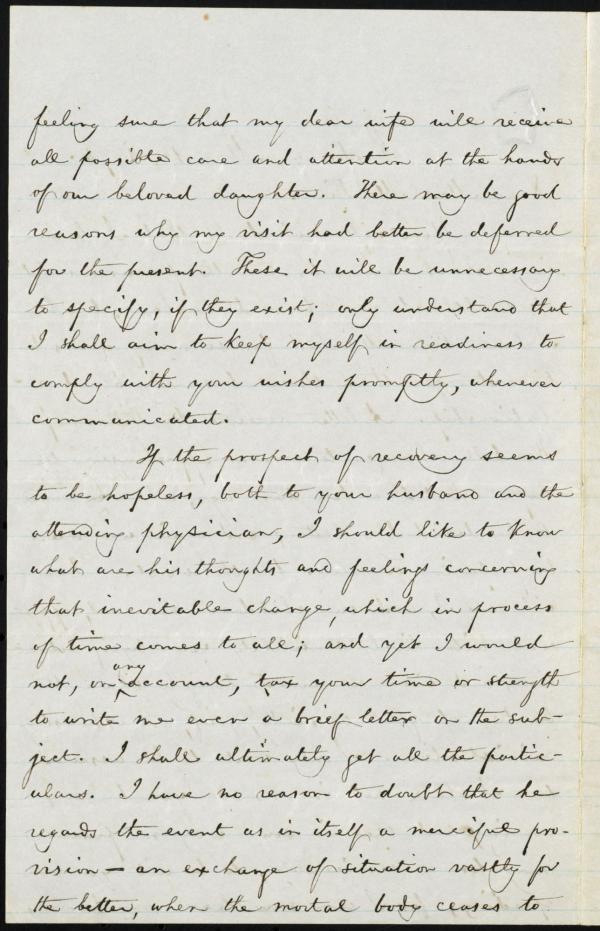 feeling sure that my dear wife will receive
all possible care and attention at the hands
of our beloved daughter. There may be good
reasons why my visit had better be deferred
for the present. These it will be unnecessary
to specify, if they exist; only understand that
I shall aim to keep myself in readiness to
comply with your wishes promptly, whenever
communicated.
If the prospect of recovery seems
to be hopeless, both to your husband and the
attending physician, I should like to know
what are his thoughts and feelings concerning
that inevitable change, which in process
of time comes to all; and yet I would
not, on any account, tax your time or strength
to write me even a brief letter on the sub-
ject. I shall ultimately get all the partic-
ulars. I have no reason to doubt that he
regards the event as in itself a merciful pro-
vision — an exchange of situation vastly for
the better, when the mortal body ceases to